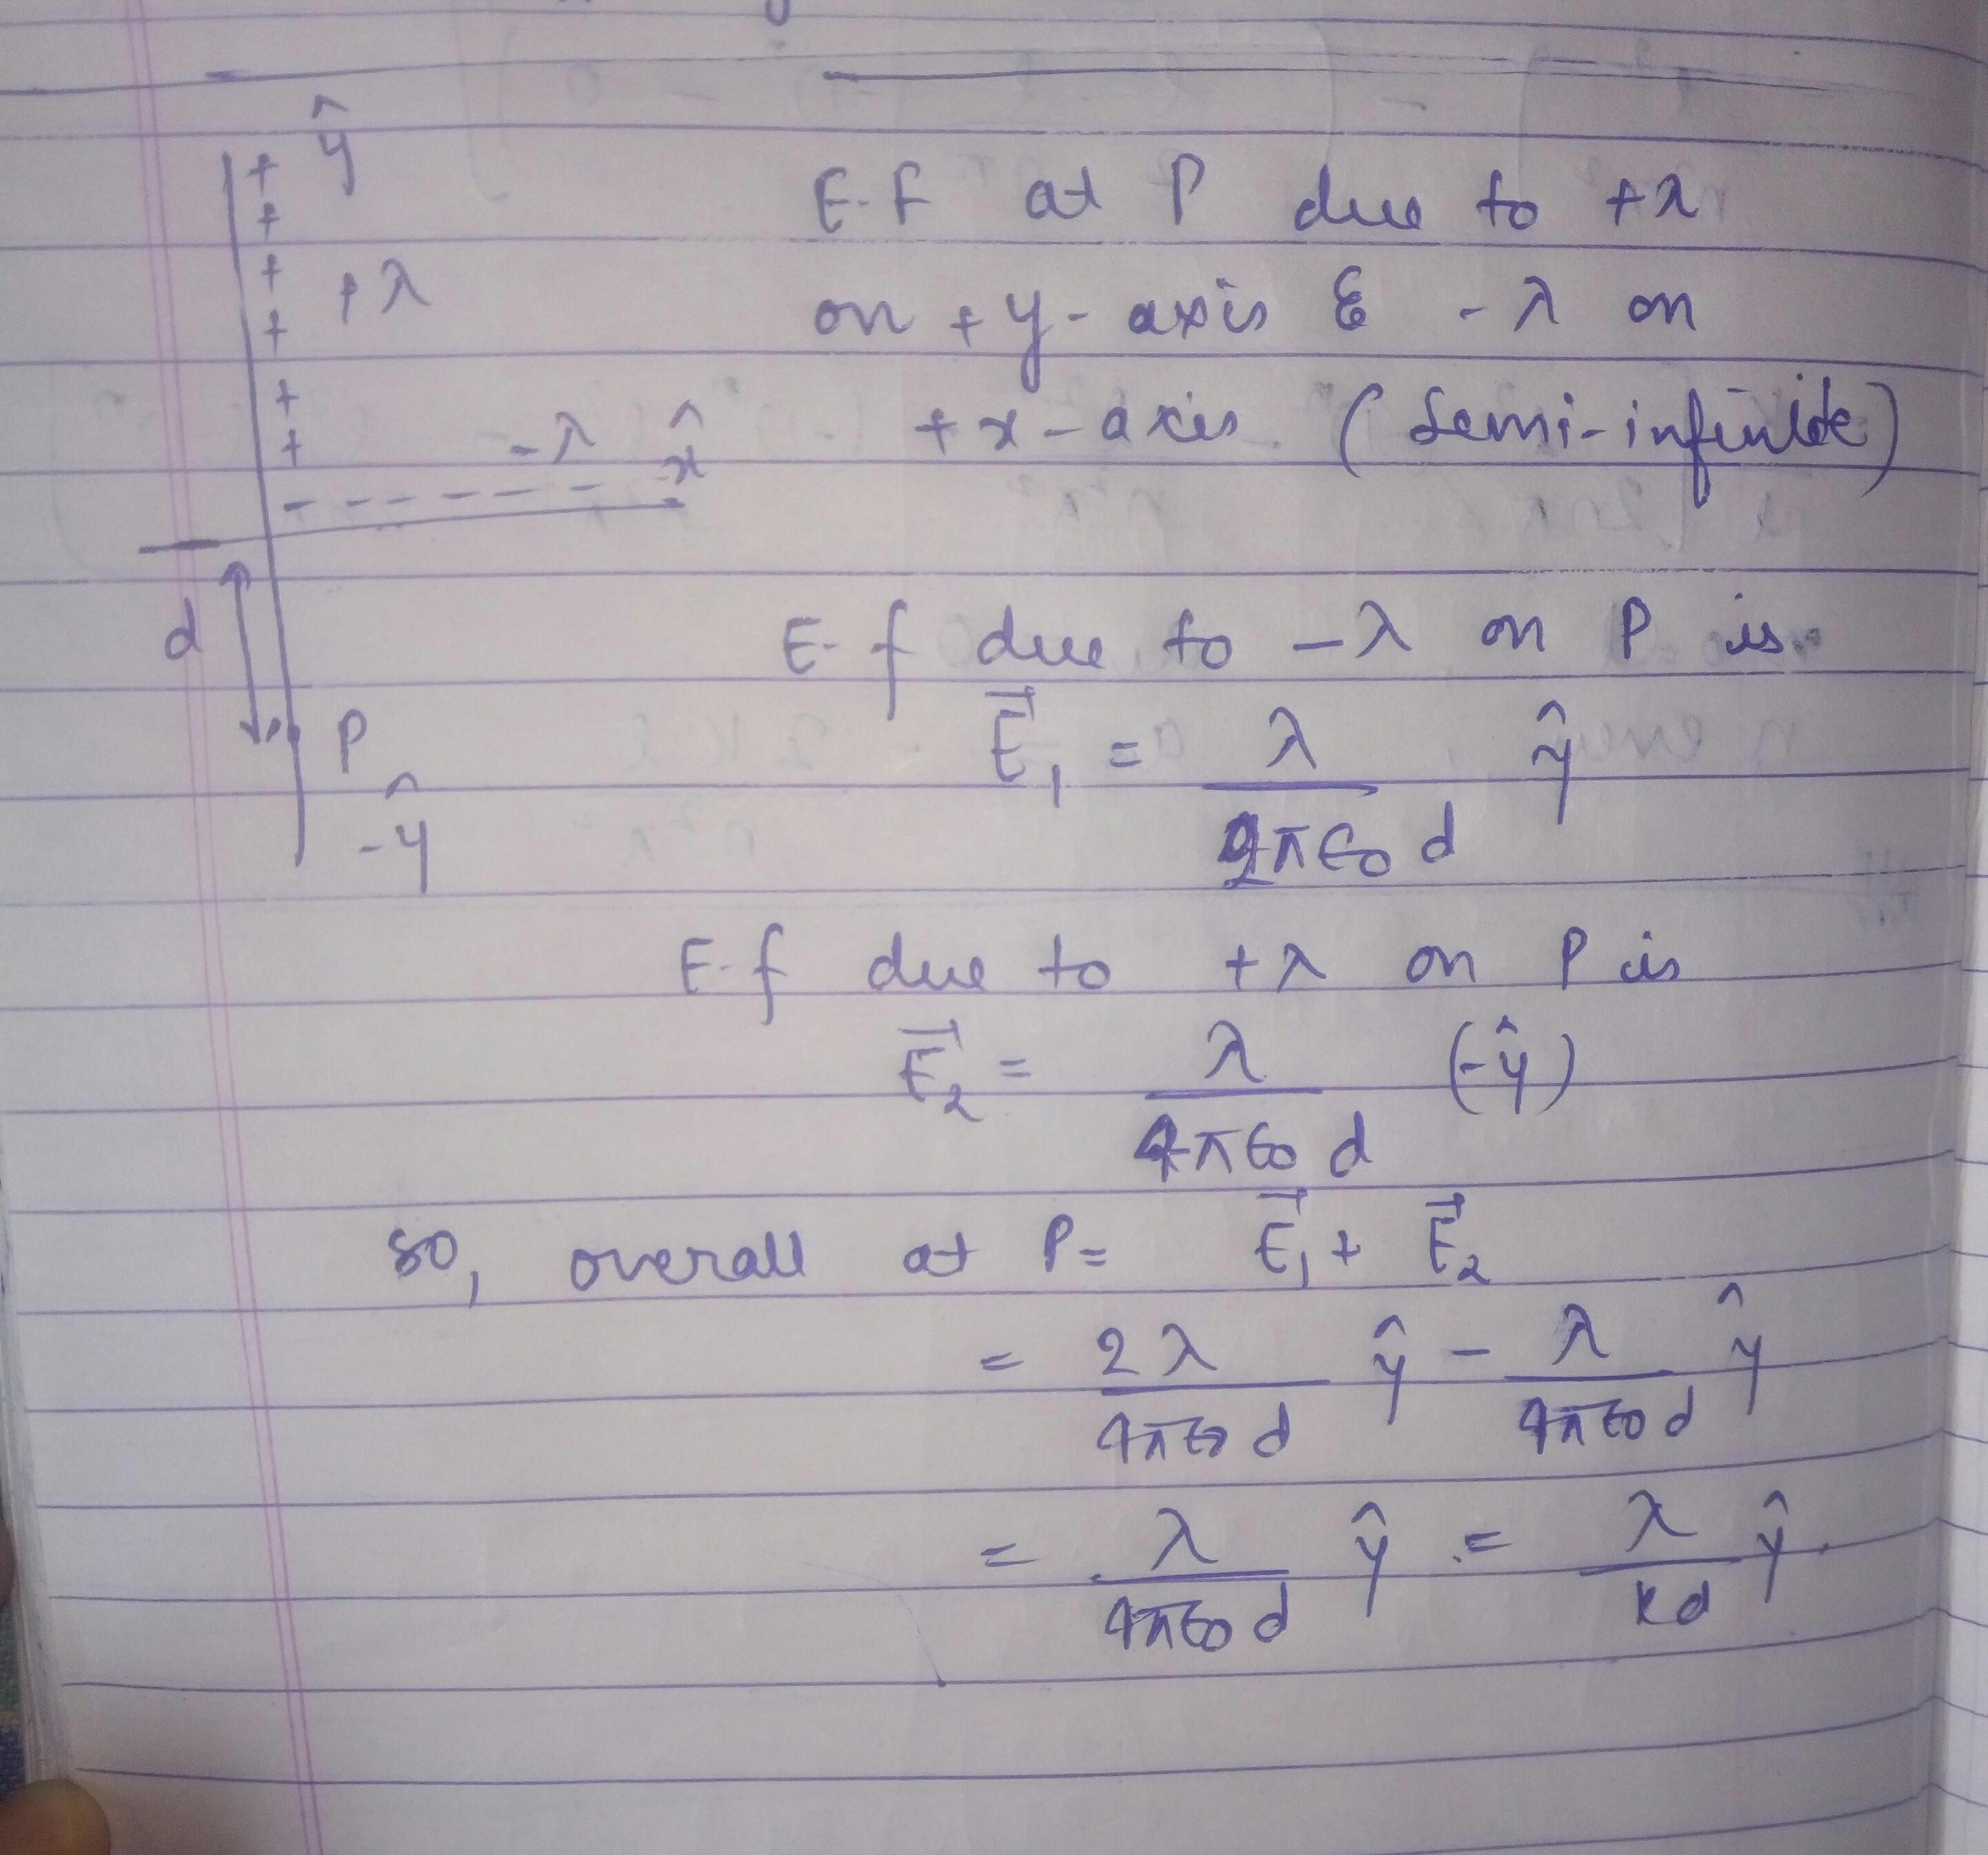 ŷ
E.F at P due to +λ
+λ
on +y-axis & -λ on
+x-axis (Semi-infinite)
-λ x̂
d
E.f due to -λ on P is
P
E⃗₁ = λ/2πϵ₀d ŷ
-ŷ
E.f due to +λ on P is
E⃗₂ = λ/4πϵ₀d (-ŷ)
so, overall at P = E⃗₁ + E⃗₂
= 2λ/4πϵ₀d ŷ - λ/4πϵ₀d ŷ
= λ/4πϵ₀d ŷ = λ/kd ŷ